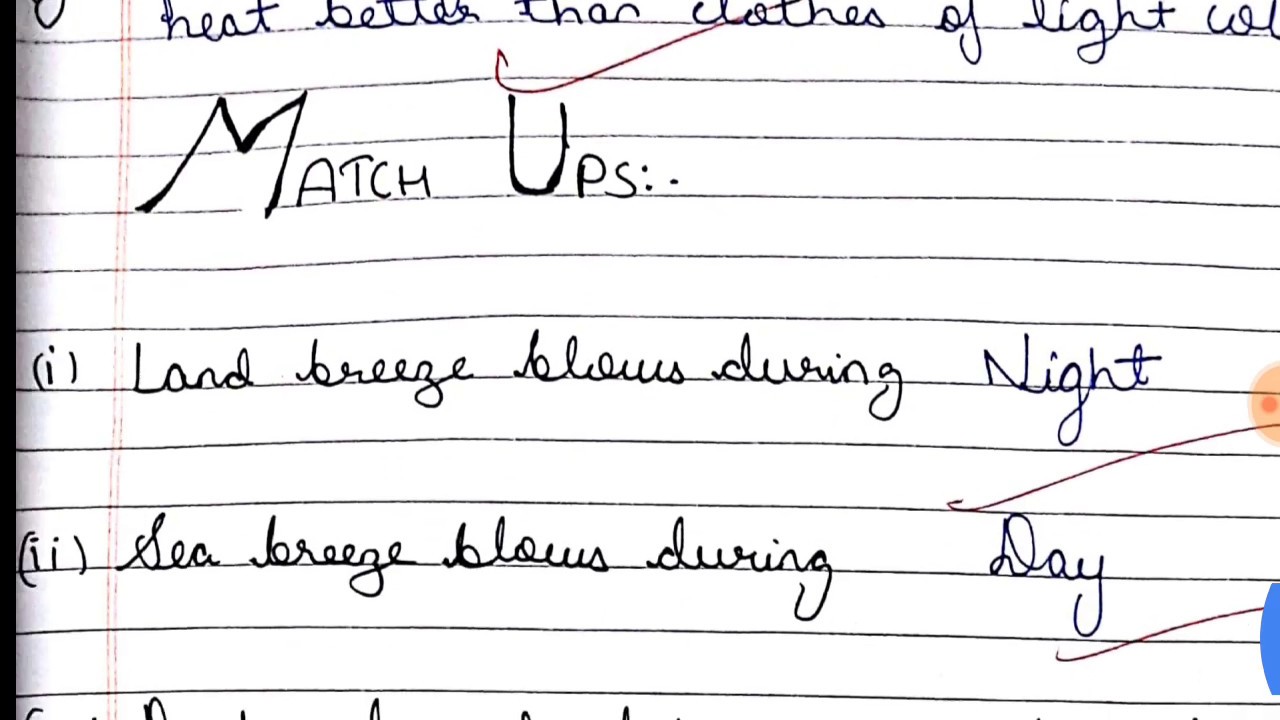 heat better than clothes of light
MATCH UPS:-
(i) Land breeze blows during Night
(ii) Sea breeze blows during Day